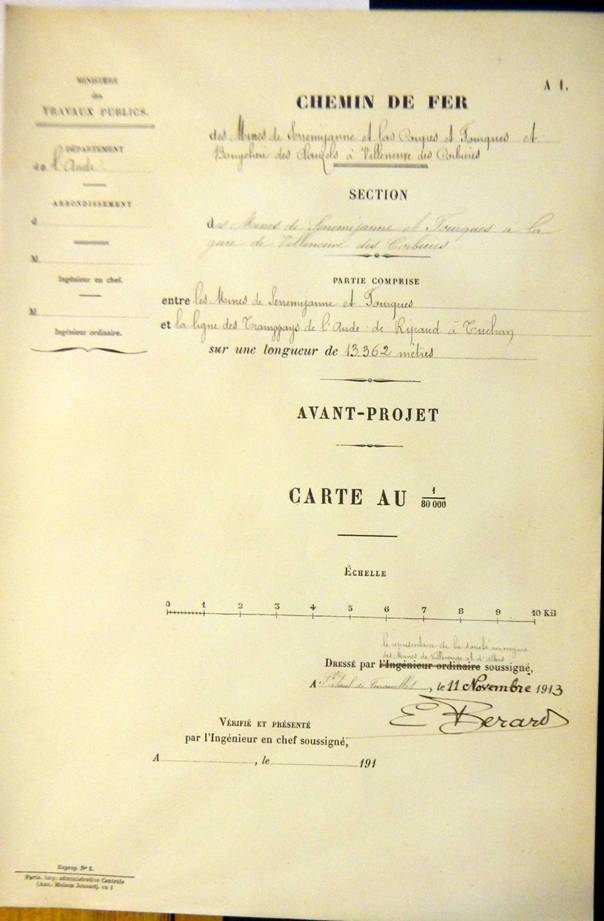 A 1.
MINISTÈRE
des
TRAVAUX PUBLICS.
DÉPARTEMENT
de l'Aude
ARRONDISSEMENT
d
M
Ingénieur en chef.
M
Ingénieur ordinaire.
CHEMIN DE FER
des Mines de Serremijanne et Las et Fourques et
des à Villeneuve des Corbières
SECTION
des Mines de Serremijanne et Fourques à la
gare de Villeneuve des Corbières
PARTIE COMPRISE
entre les Mines de Serremijanne et Fourques
et la ligne des Tramways de l'Aude de Ripaud à Tuchan
sur une longueur de 13362 mètres
AVANT-PROJET
CARTE AU 1/80 000
ÉCHELLE
0 1 2 3 4 5 6 7 8 9 10 Kil
le représentant de la société anonyme
des Mines de Villeneuve et d'
DRESSÉ par l'Ingénieur ordinaire soussigné,
A St Paul de Fenouillet, le 11 Novembre 1913
E Bérard
VÉRIFIÉ ET PRÉSENTÉ
par l'Ingénieur en chef soussigné,
A , le 191
Exprop. N° 2.
Paris. Imp. administrative Centrale